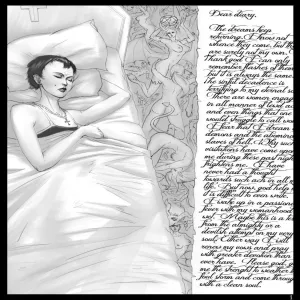 Dear diary.
The dreams keep
returning. I know not
whence they come, but th
are surely not my own.
Thank god I can only
remember flashes of them
but it is always the same
the sinful decadence is
terrifying to my eternal so
There are women engag
in all manner of lewd ac
and even things that one
would struggle to call wo
I fear that I dream
demons and the
slaves of hell. Why such
have come upo
me during these past nigh
frightens me. I have
never had a thought
towards such acts in all m
life. But now, god help
it is difficult to even write.
I wake up in a passion
with my womanhood
wet. Maybe this is a te
from the almighty or a
devilish attempt on my ver
soul. Either way I will
renew my vows and pray
with greater devotion than
ever have. Please god, gi
me the strenght to weather
foul storm and come through
with a clean soul.